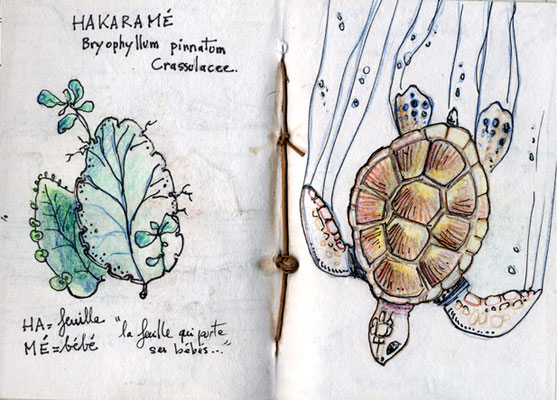 HAKARAMÉ
Bryophyllum pinnatum
Crassulacee.
HA = feuille
MÉ = bébé
"la feuille qui porte
ses bébés..."